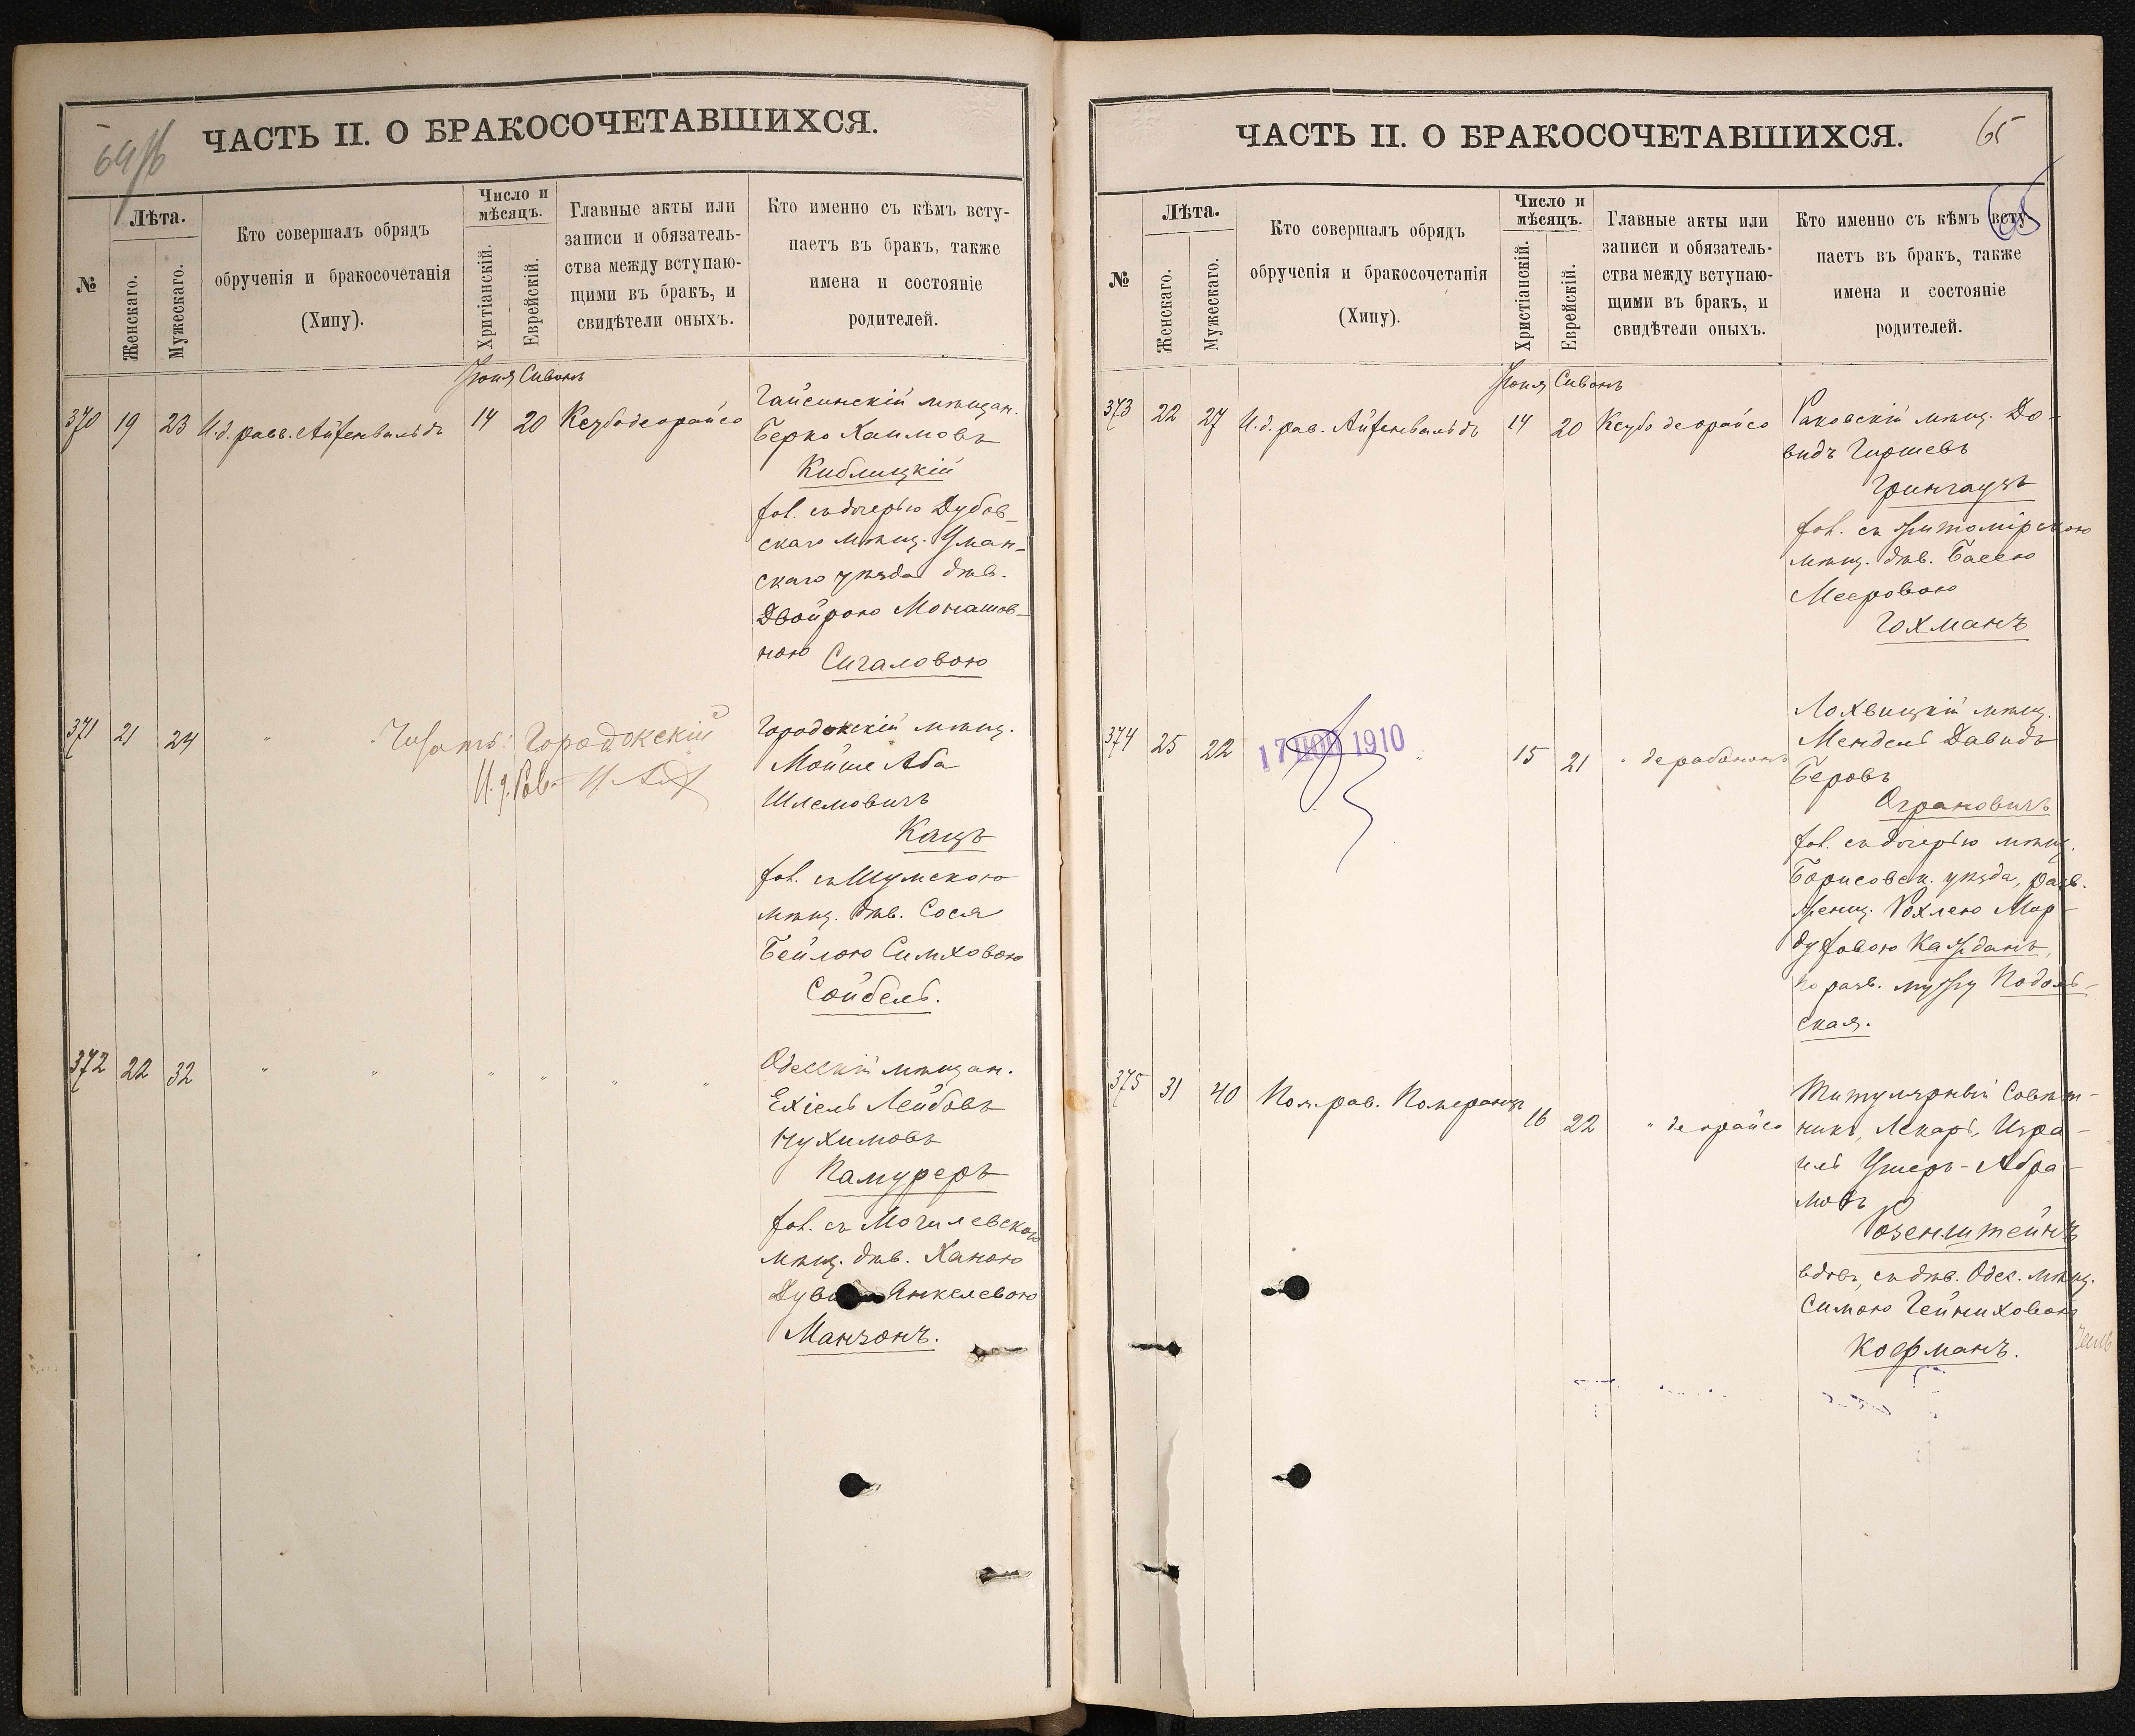 64 об
ЧАСТЬ II. О БРАКОСОЧЕТАВШИХСЯ.
№
Лѣта.
Женскаго.
Мужескаго.
Кто совершалъ обрядъ
обрученія и бракосочетанія
(Хипу).
Число и
мѣсяцъ.
Хритіанскій.
Еврейскій.
Главные акты или
записи и обязатель-
ства между вступаю-
щими въ бракъ, и
свидѣтели оныхъ.
Кто именно съ кѣмъ всту-
паетъ въ бракъ, также
имена и состояніе
родителей.
Іюня Сивонъ
370 19 23 И.д. равв. Айзенвальдъ 14 20 Ксубо деорайсо
Гайсинскій мѣщан.
Берко Хаимовъ
Киблицкій
хол. съ дочерью Дубов-
скаго мѣщ. Уман-
скаго уѣзда дѣв.
Двойрою Монашов-
ною Сигаловою
371 21 24 "
Читать: Городокскій
И.д. Рав.
Городокскій мѣщ.
Мойше Аба
Шлемовичъ
Кацъ
хол. съ Шумскою
мѣщ. дѣв. Сося
Бейлою Симховою
Сойбель.
372 22 32 " " " " " "
Одесскій мѣщан.
Ехіель Лейбовъ
Нухимовъ
Памуреръ
хол. съ Могилевскою
мѣщ. дѣв. Ханою
Янкелевою
Манзонъ.
65
ЧАСТЬ II. О БРАКОСОЧЕТАВШИХСЯ.
65
№
Лѣта.
Женскаго.
Мужескаго.
Кто совершалъ обрядъ
обрученія и бракосочетанія
(Хипу).
Число и
мѣсяцъ.
Христіанскій.
Еврейскій.
Главные акты или
записи и обязатель-
ства между вступаю-
щими въ бракъ, и
свидѣтели оныхъ.
Кто именно съ кѣмъ всту-
паетъ въ бракъ, также
имена и состояніе
родителей.
Іюня Сивонъ
373 22 27 И.д. рав. Айзенвальдъ 14 20 Ксубо деорайсо
Раковскій мѣщ. До-
видъ Гиршевъ
Грингаузъ
хол. съ Житомірскою
мѣщ. дѣв. Басею
Мееровою
Гохманъ
374 25 22 17 НОЯ 1910 " 15 21 " дерабононъ
Лохвицкій мѣщ.
Мендель Давидъ
Беровъ
Аграновичъ
хол. съ дочерью мѣщ.
Борисовск. уѣзда, разв.
женщ. Рохлею Мор-
духовою Кажданъ,
по разв. мужу Подоль-
ская.
375 31 40 Пом. рав. Померанцъ 16 22 " деорайсо
Титулярный Совѣт-
никъ, Лекарь, Изра-
иль Ушеръ-Абра-
мовъ
Розенштейнъ
вдов., съ дѣв. Одес. мѣщ.
Симою Гейниховою
Кофманъ.